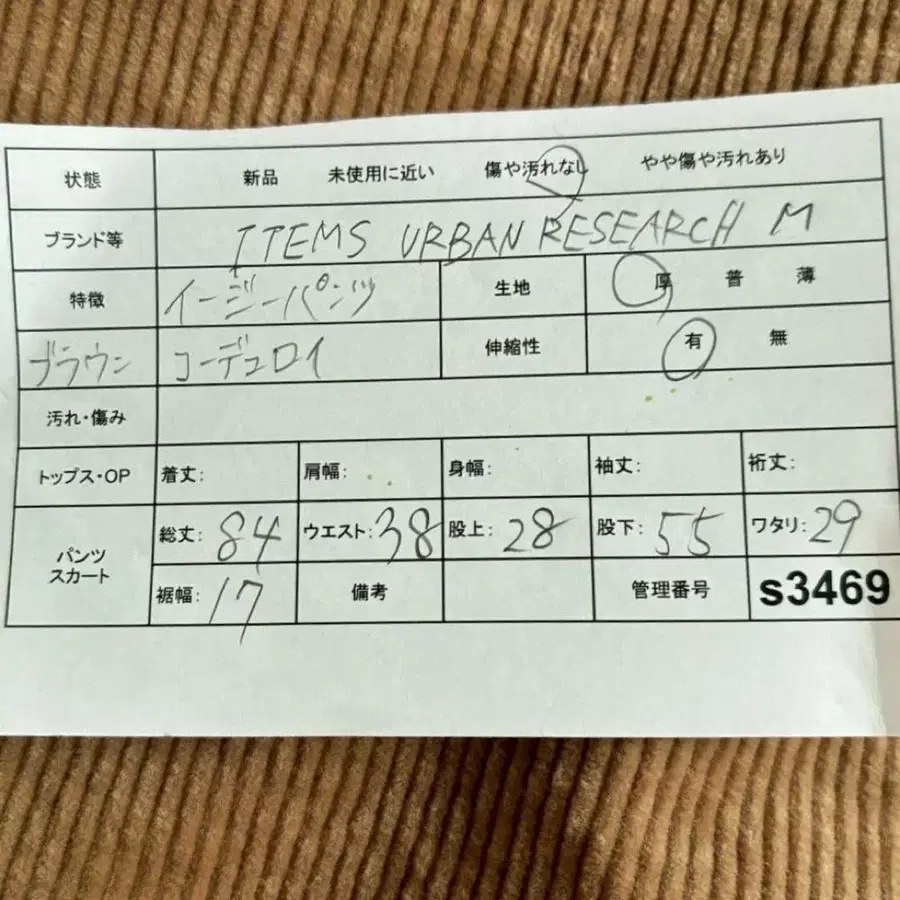 状態 新品 未使用に近い 傷や汚れなし やや傷や汚れあり
ブランド等 ITEMS URBAN RESEARCH M
特徴 イージーパンツ 生地 厚 普 薄
ブラウン コーデュロイ 伸縮性 有 無
汚れ・傷み
トップス・OP 着丈: 肩幅: 身幅: 袖丈: 裄丈:
パンツ スカート 総丈: 84 ウエスト: 38 股上: 28 股下: 55 ワタリ: 29
裾幅: 17 備考 管理番号 s3469